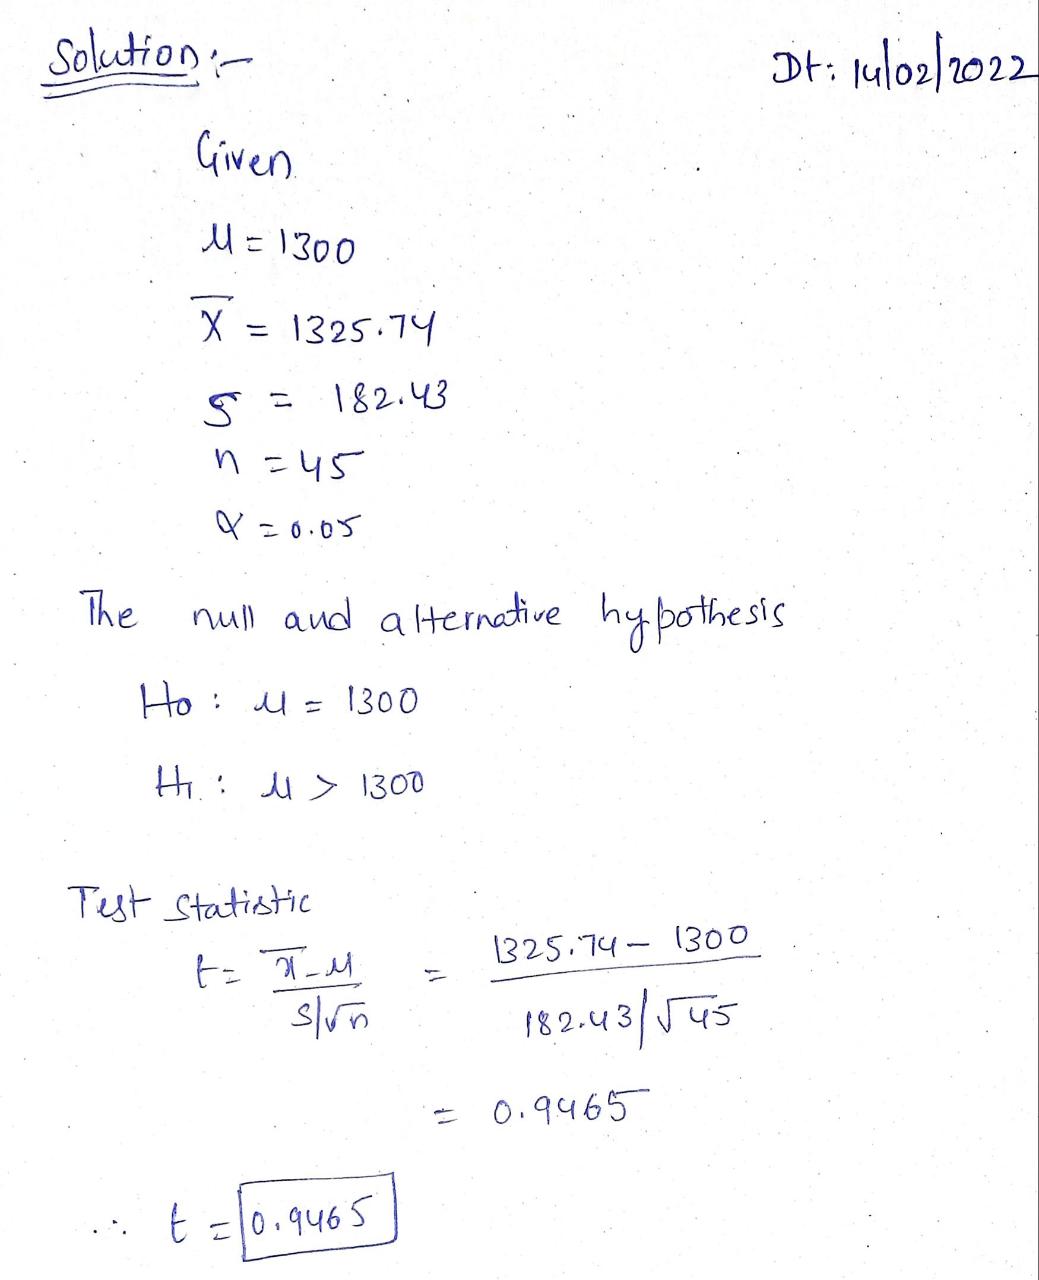 Solution :-
Dt: 14/02/2022
Given
μ = 1300
X̅ = 1325.74
S = 182.43
n = 45
α = 0.05
The null and alternative hypothesis
Ho : μ = 1300
H1 : μ > 1300
Test Statistic
t = x̅ - μ / s/√n = 1325.74 - 1300 / 182.43/√45
= 0.9465
∴ t = 0.9465